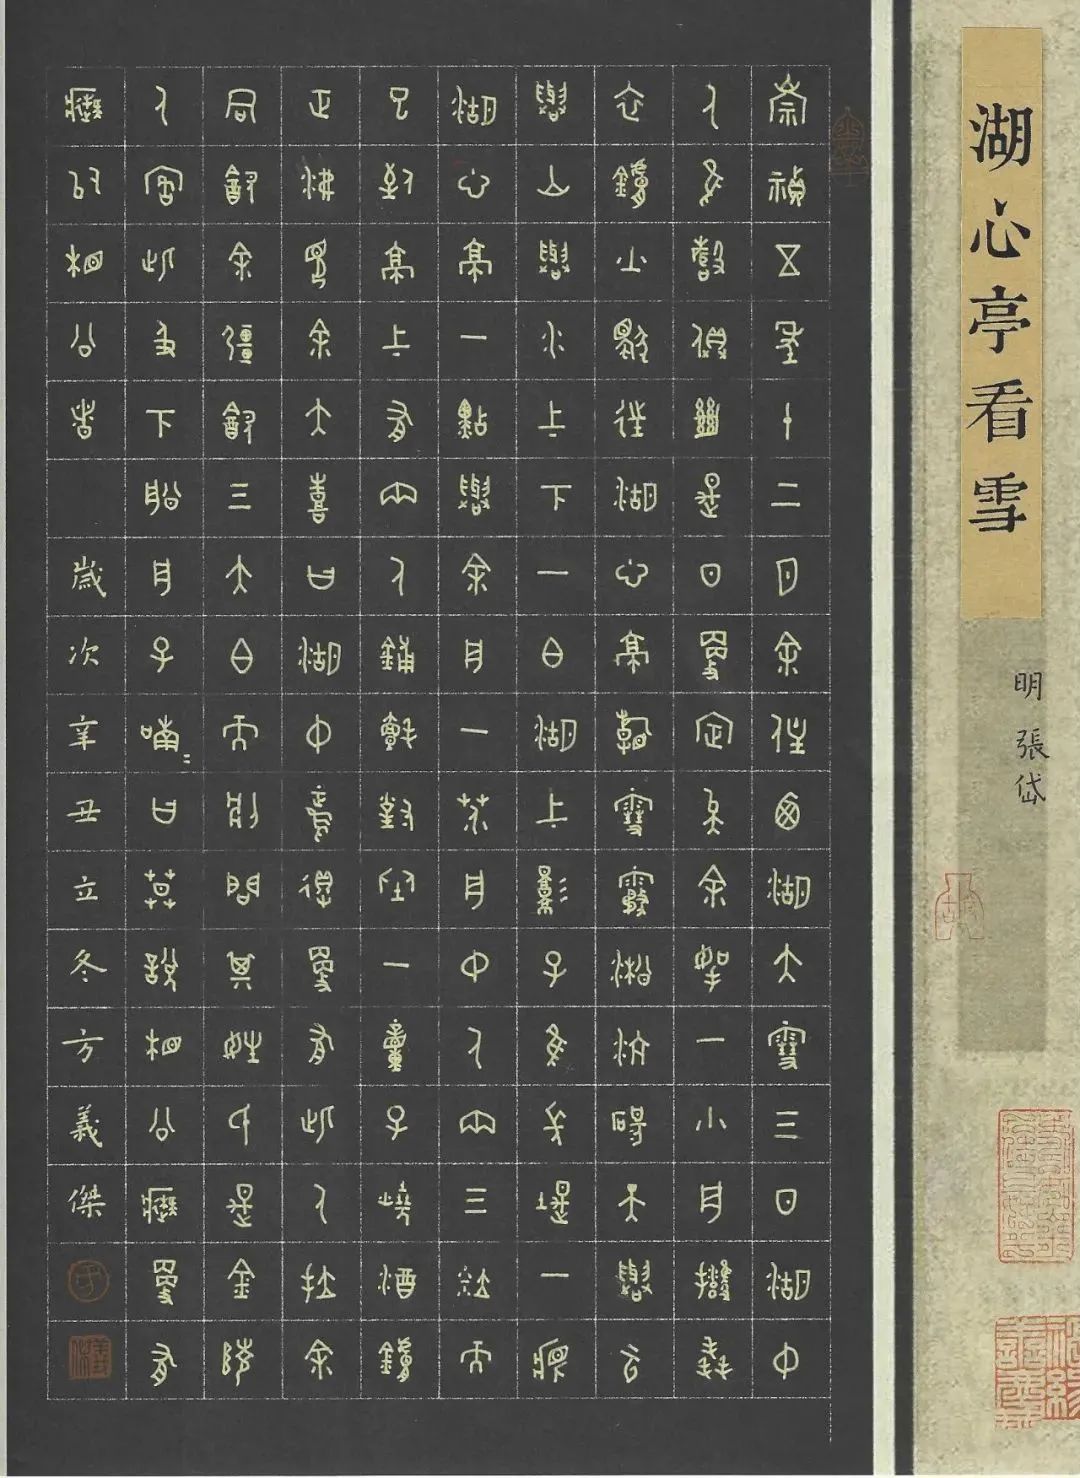 湖心亭看雪
明 張岱
崇禎五年十二月余住西湖大雪三日湖中
人鳥聲俱絕是日更定矣余拏一小舟擁毳
衣鑪火獨往湖心亭看雪霧淞沆碭天與雲
與山與水上下一白湖上影子惟長堤一痕
湖心亭一點與余舟一芥舟中人兩三粒而
已到亭上有兩人鋪氈對坐一童子燒酒鑪
正沸見余大喜曰湖中焉得更有此人拉余
同飲余強飲三大白而別問其姓氏是金陵
人客此及下船舟子喃〻曰莫說相公癡更有
癡似相公者 歲次辛丑立冬方義傑